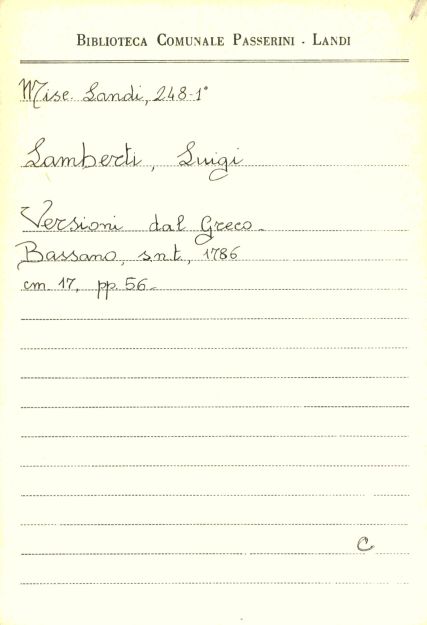 BIBLIOTECA COMUNALE PASSERINI - LANDI
Misc. Landi, 248-1°
Lamberti, Luigi
Versioni dal Greco.
Bassano, s.n.t., 1786
cm. 17, pp. 56.
C